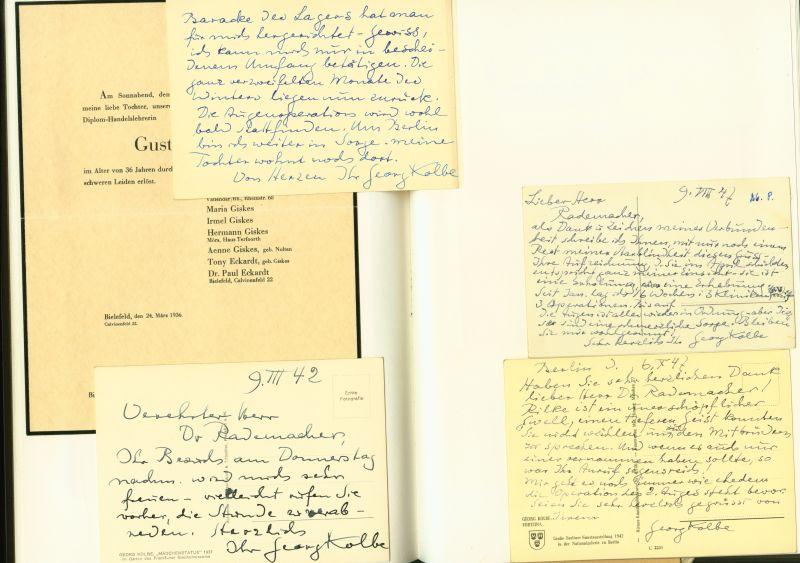 Am Sonnabend, den
meine liebe Tochter, unsere
Diplom-Handelslehrerin
Gust
im Alter von 36 Jahren durch
schweren Leiden erlöst.
Maria Giskes
Irmel Giskes
Hermann Giskes
Mörs, Haus Terfoorth
Aenne Giskes, geb. Noltan
Tony Eckardt, geb. Giskes
Dr. Paul Eckardt
Bielefeld, Calvisenfeld 22
Bielefeld, den 24. März 1936.
Calvisenfeld 22.
Baracke des Lagers hat man
für mich hergerichtet - gewiss,
ich kann mich nur in beschei-
denem Umfang betätigen. Die
ganz verzweifelten Monate des
Winters liegen nun zurück.
Die Augenoperation wird wohl
bald stattfinden. Um Berlin
bin ich weiter in Sorge. meine
Tochter wohnt noch dort.
Von Herzen Ihr Georg Kolbe
9. III 42
Echte
Fotografie
Verehrter Herr
Dr Rademacher,
Ihr Besuch am Donnerstag
nachm. wird mich sehr
freuen - vielleicht rufen Sie
vorher, die Stunde zu verab-
reden. Herzlichst
Ihr Georg Kolbe
GEORG KOLBE, „MÄDCHENSTATUE" 1937
9. VIII 47
Lieber Herr
Rademacher,
als Dank u Zeichen meiner Verbunden-
heit schreibe ich Ihnen, mit nur noch einem
Rest meiner
Ihre Aufzeichnung, die Sie im April schickten
entspricht ganz meiner Einsicht - sie ist
eine Erhebung
Seit Jan. lag ich 16 Wochen in 3 Kliniken
3 Operationen. Bis auf
die Augen ist alles wieder in Ordnung - aber
sind eine schmerzliche Sorge. Bleiben
Sie mir
Sehr herzlichst Ihr Georg Kolbe
Berlin 3. 6. X 47
Haben Sie sehr herzlichen Dank
lieber Herr Dr Rademacher!
Rilke ist ein unerschöpflicher
Quell, einen tieferen Geist konnten
Sie nicht wählen um den Mitbrüdern
zu sprechen. Und wenn es auch nur
einer vernommen haben sollte, so
war Ihr Anruf segensreich!
Mir geht es noch immer wie ehedem
die Operation des 2. Auges steht bevor
seien Sie sehr herzlichst gegrüsst von
Ihrem
Georg Kolbe
GEORG KOLBE
FORTUNA
Große Berliner Kunstausstellung 1942
in der Nationalgalerie zu Berlin